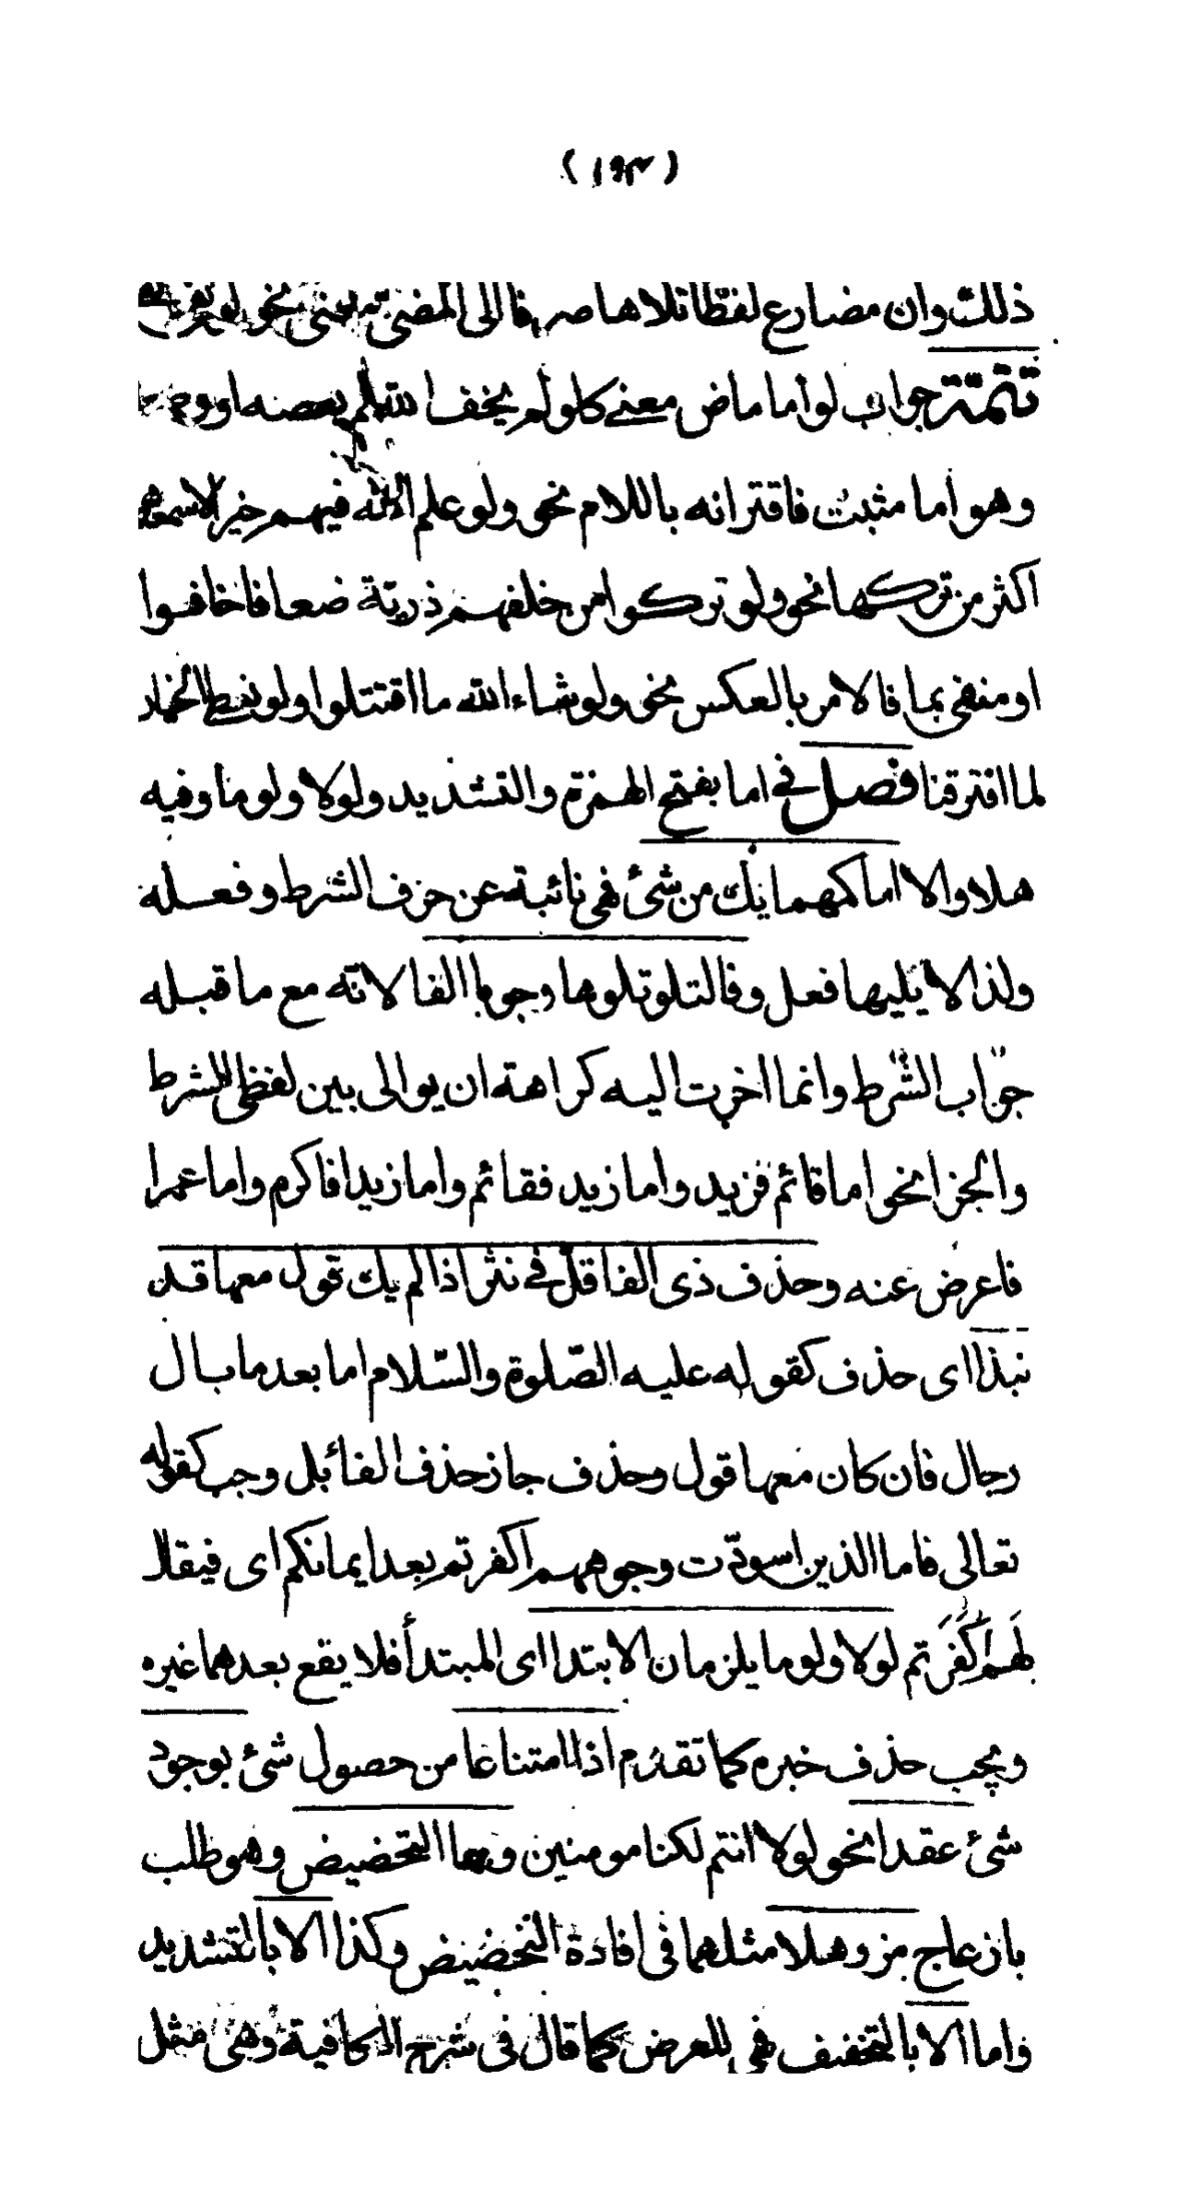 (١٩٣)
ذلك وان مضارع لفظا تلاها صرفا الى المضى معنى نحو لو يفى
تتمة جواب لو اما ماض معنى كلو لم يخف الله لم يعصه او وضعا
وهو اما مثبت فاقترانه باللام نحو ولو علم الله فيهم خيرا لاسمعهم
اكثر من تركها نحو ولو تركوا من خلفهم ذرية ضعافا خافوا
او منفى بما فالامر بالعكس نحو ولو شاء الله ما اقتتلوا ولو نعطى الخيار
لما افترقنا فصل فى اما بفتح الهمزة والتشديد ولولا ولوما وفيه
هلا والا اما كمهما يك من شئ فهى نائبة عن حرف الشرط وفعله
ولذا لا يليها فعل وفا لتلو تلوها وجوبا الفا لانه مع ما قبله
جواب الشرط وانما اخرت اليه كراهة ان يوالى بين لفظى الشرط
والجزا نحو اما قائم فزيد واما زيد فقائم واما زيدا فاكرم واما عمرا
فاعرض عنه وحذف ذى الفا قل فى نثر اذا لم يك قول معها قد
نبذا اى حذف كقوله عليه الصّلوة والسّلام اما بعد ما بال
رجال فان كان معها قول وحذف جاز حذف الفا بل وجب كقوله
تعالى فاما الذين اسودّت وجوههم اكفرتم بعد ايمانكم اى فيقال
لهم اكفرتم لولا ولوما يلزمان الابتدا اى المبتدأ فلا يقع بعدهما غيره
ويجب حذف خبره كما تقدم اذا امتناعا من حصول شئ بوجود
شئ عقدا نحو لولا انتم لكنا مومنين وبهما التحضيض وهو طلب
بازعاج مز وهلا مثلهما فى افادة التحضيض وكذا الا بالتشديد
واما الا بالتخفيف فهى للعرض كما قال فى شرح الكافية وهى مثل